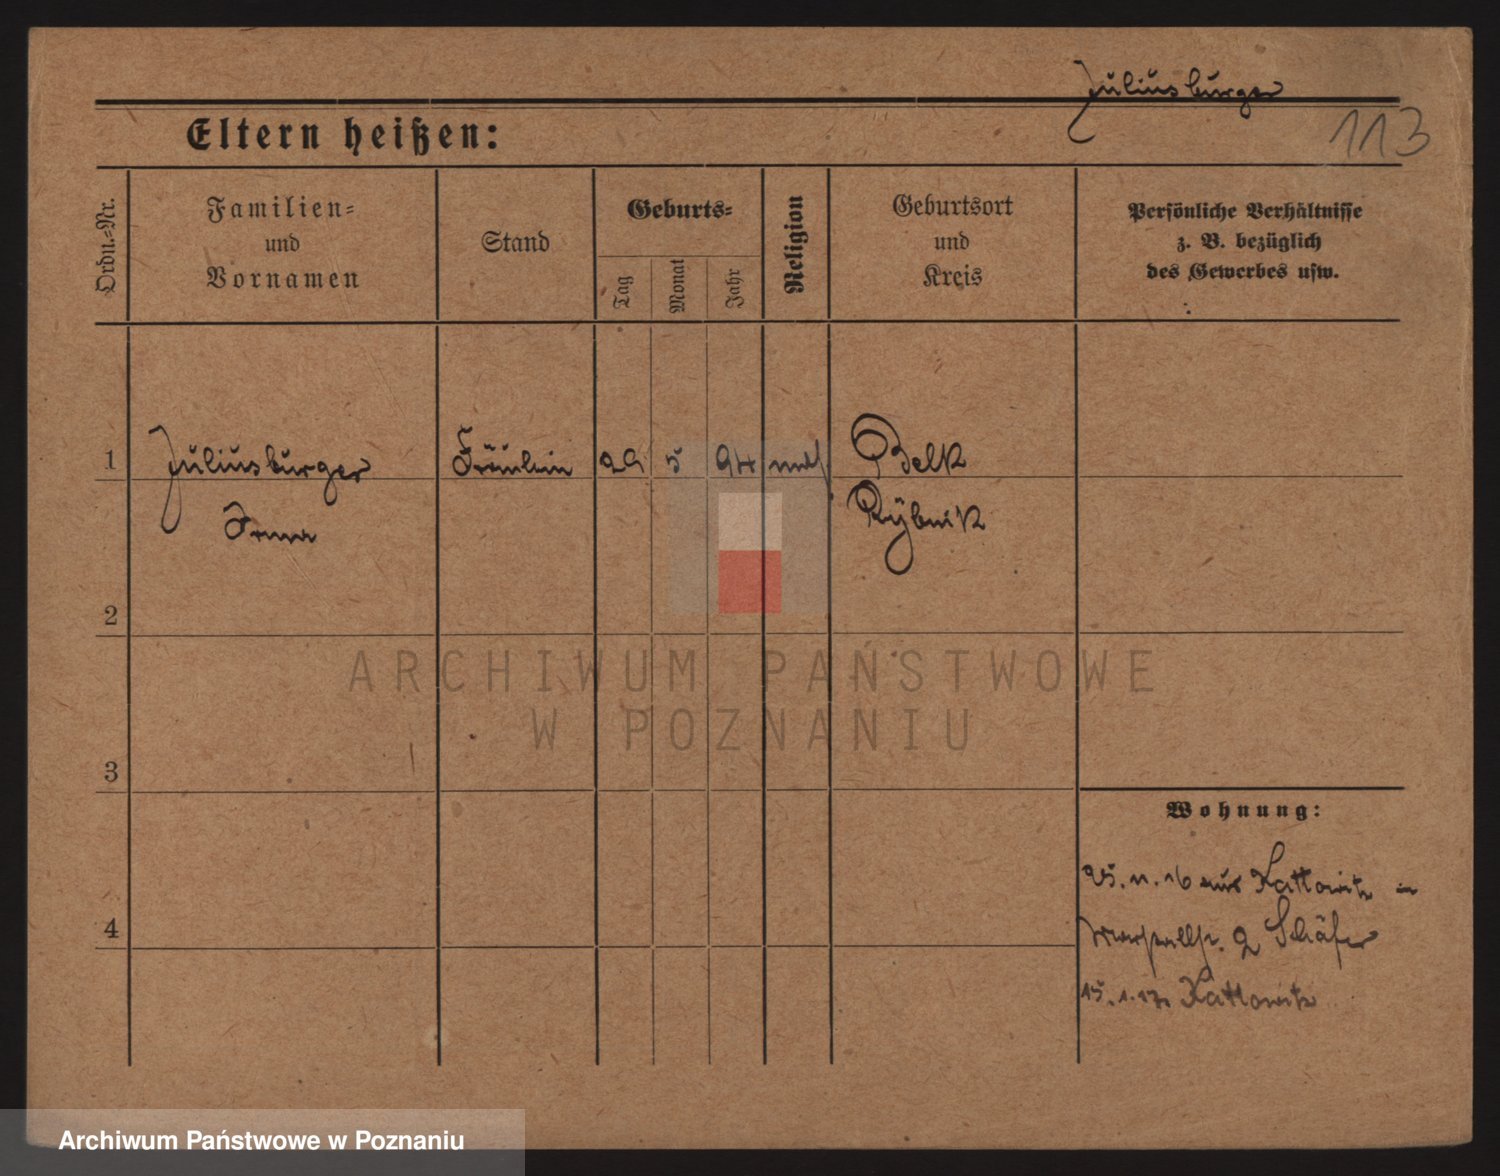 Juliusburger
113
Eltern heißen:
Ordn.-Nr.
Familien-
und
Vornamen
Stand
Geburts-
Tag
Monat
Jahr
Religion
Geburtsort
und
Kreis
Persönliche Verhältnisse
z. B. bezüglich
des Gewerbes usw.
1
Juliusburger
Fräulein
29
5
94
mos.
Belk
Rybnik
2
ARCHIWUM PAŃSTWOWE
W POZNANIU
3
Wohnung:
25. 11. 16 aus Kattowitz in
2 Schäfer
4
15. 1. 17 Kattowitz
Archiwum Państwowe w Poznaniu